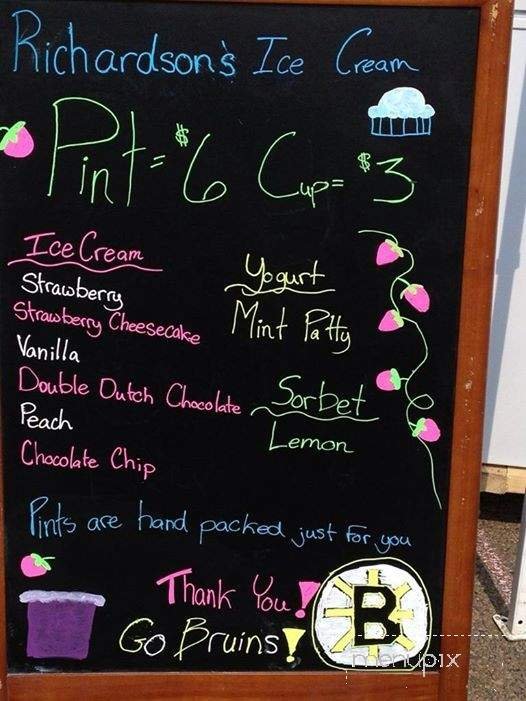 Richardson's Ice Cream
Pint = $6 Cup = $3
Ice Cream
Strawberry
Strawberry Cheesecake
Vanilla
Double Dutch Chocolate
Peach
Chocolate Chip
Yogurt
Mint Patty
Sorbet
Lemon
Pints are hand packed just for you
Thank You!
Go Bruins!
B
menupix